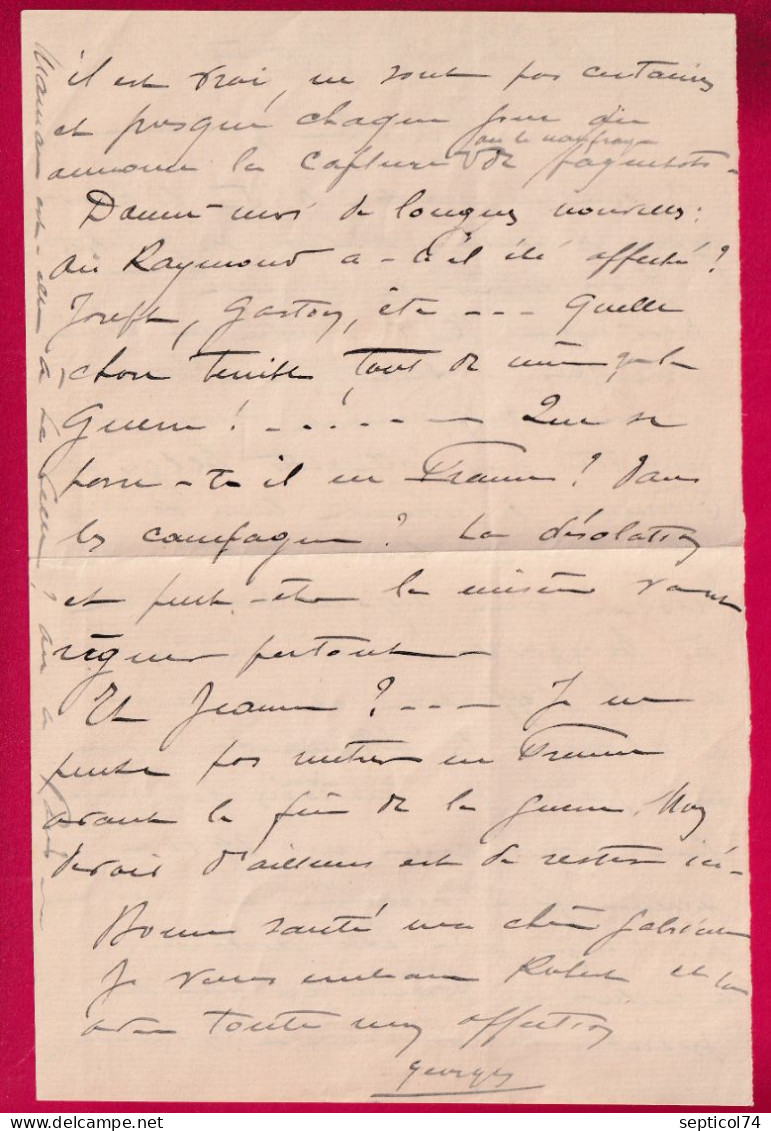 il est vrai, ne sont pas certaines
et presque chaque jour on
ou le naufrage
annonce la capture de paquebots.
Donne-moi de longues nouvelles :
où Raymond a-t-il été affecté ?
Joseph, Gaston, etc --- Quelle
chose terrible tout de même que la
Guerre ! --- ! --- Que se
passe-t-il en France ? Dans
les campagnes ? La désolation
et peut-être la misère vont
régner partout -
Et Jeanne ? --- Je ne
pense pas rentrer en France
avant la fin de la guerre. Mon
devoir d'ailleurs est de rester ici -
Bonne santé ma chère Gabrielle
Je vous embrasse Robert et toi
avec toute mon affection
Georges
Maman est-elle à ? ou à
septicol74